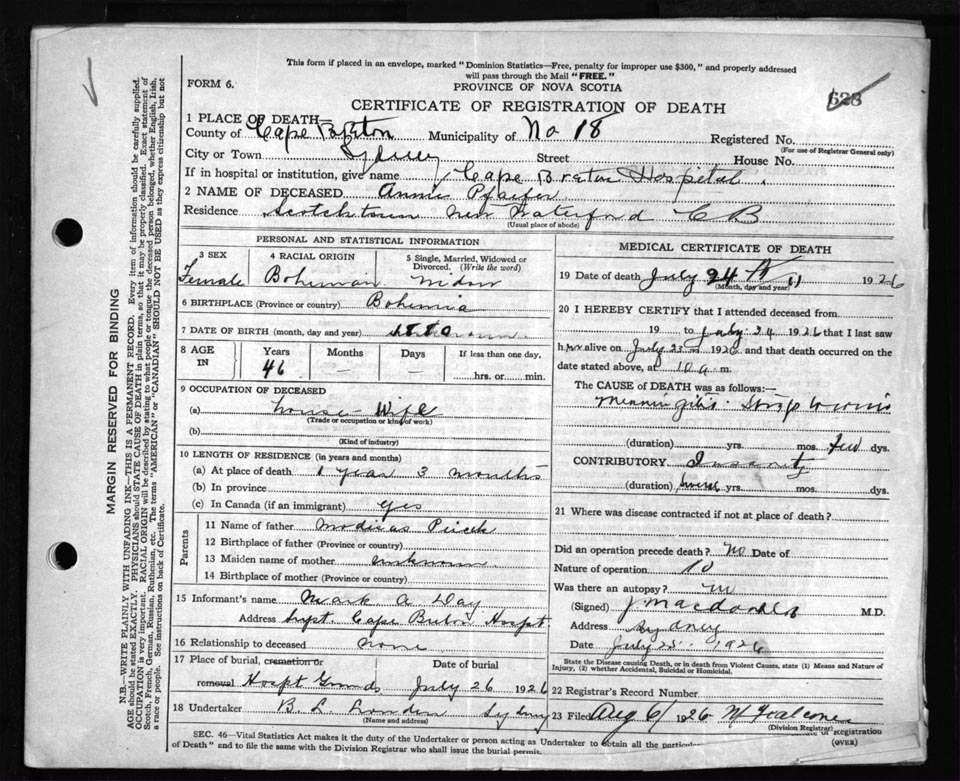 This form if placed in an envelope, marked "Dominion Statistics—Free, penalty for improper use $300," and properly addressed
will pass through the Mail "FREE."
FORM 6.
PROVINCE OF NOVA SCOTIA
628
CERTIFICATE OF REGISTRATION OF DEATH
1 PLACE OF DEATH
County of Cape Breton Municipality of No 18 Registered No.
(For use of Registrar General only)
City or Town Sydney Street House No.
If in hospital or institution, give name Cape Breton Hospital.
2 NAME OF DECEASED Annie Pfaifer
Residence Scotchtown New Waterford C B
(Usual place of abode)
PERSONAL AND STATISTICAL INFORMATION
3 SEX
4 RACIAL ORIGIN
5 Single, Married, Widowed or Divorced. (Write the word)
Female Bohemian Widow
6 BIRTHPLACE (Province or country) Bohemia
7 DATE OF BIRTH (month, day and year) 1880
8 AGE IN
Years Months Days If less than one day,
46 — —
hrs. or min.
9 OCCUPATION OF DECEASED
(a) house Wife
(Trade or occupation or kind of work)
(b)
(Kind of industry)
10 LENGTH OF RESIDENCE (in years and months)
(a) At place of death 1 year 3 months
(b) In province
(c) In Canada (if an immigrant) yes
Parents
11 Name of father
12 Birthplace of father (Province or country)
13 Maiden name of mother unknown
14 Birthplace of mother (Province or country)
15 Informant's name Mark A Day
Address Supt. Cape Breton Hospt
16 Relationship to deceased none
17 Place of burial, cremation or Date of burial
removal Hospt Grounds July 26 1926
18 Undertaker B. L. London Sydney
(Name and address)
MEDICAL CERTIFICATE OF DEATH
19 Date of death July 24 1926
(Month, day and year)
20 I HEREBY CERTIFY that I attended deceased from
19 to July 24 1926 that I last saw
her alive on July 23 1926 and that death occurred on the
date stated above, at 10 a m.
The CAUSE of DEATH was as follows:—
Meningitis
(duration) yrs. mos. few dys.
CONTRIBUTORY Insanity
(duration) several yrs. mos. dys.
21 Where was disease contracted if not at place of death?
Did an operation precede death? no Date of
Nature of operation
Was there an autopsy? no
(Signed) J Macdonald M.D.
Address Sydney
Date July 25 1926
State the Disease causing Death, or in death from Violent Causes, state (1) Means and Nature of
Injury, (2) whether Accidental, Suicidal or Homicidal.
22 Registrar's Record Number
23 Filed Aug 6/1926
(Division Registrar)
SEC. 46—Vital Statistics Act makes it the duty of the Undertaker or person acting as Undertaker to obtain all the of Registration
of Death" and to file the same with the Division Registrar who shall issue the burial permit.
(OVER)
MARGIN RESERVED FOR BINDING
N.B.—WRITE PLAINLY WITH UNFADING INK—THIS IS A PERMANENT RECORD. Every item of information should be carefully supplied.
AGE should be stated EXACTLY. PHYSICIANS should STATE CAUSE OF DEATH in plain terms, so that it may be properly classified. Exact statement of
OCCUPATION is very important. RACIAL ORIGIN will be described by stating to what people or tongue the deceased person belonged, whether English, Irish,
Scotch, French, German, Russian, Ruthenian, etc. The terms "AMERICAN" or "CANADIAN" SHOULD NOT BE USED as they express citizenship but not
a race or people. See instructions on back of Certificate.